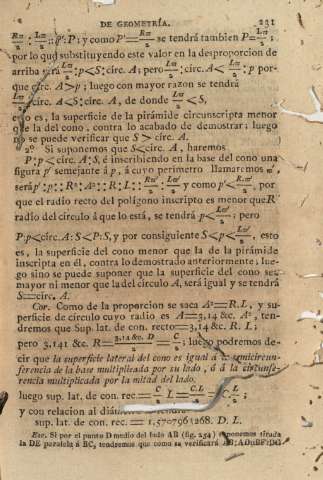 DE GEOMETRÍA. 231
se tendrá tambien P=
por lo que substituyendo este valor en la desproporcion de
arriba será :p<S:circ. A; pero :circ. A< :p por-
que circ. A>p; luego con mayor razon se tendrá
:circ. A<S:circ. A, de donde <S,
esto es, la superficie de la pirámide circunscripta menor
que la del cono, contra lo acabado de demostrar; luego
no se puede verificar que S > circ. A.
2º Si suponemos que S<circ. A, haremos
P:p<circ. A:S, é inscribiendo en la base del cono una
figura p' semejante á p, á cuyo perímetro llamaremos
será y como p'< por-
que el radio recto del polígono inscripto es menor que R
radio del círculo á que lo está, se tendrá p< ; pero
P:p<circ. A:S<P:S, y por consiguiente S<p< esto
es, la superficie del cono menor que la de la pirámide
inscripta en él, contra lo demostrado anteriormente; lue-
go sino se puede suponer que la superficie del cono sea
mayor ni menor que la del círculo A, será igual y se tendrá
S=circ. A.
Cor. Como de la proporcion se saca A²=R.L, y su-
perficie de círculo cuyo radio es A=3,14 &c. A², ten-
dremos que Sup. lat. de con. recto=3,14 &c. R. L;
pero 3,141 &c. R= 3,14 &c. D / 2 = C / 2; luego podremos de-
cir que la superficie lateral del cono es igual á la semicircun-
ferencia de la base multiplicada por su lado, ó á la circunfe-
rencia multiplicada por la mitad del lado.
luego sup. lat. de con. rec.= C/2 L = C.L/2
y con relacion al diámetro tendrá
sup. lat. de con. rec. = 1,5707963268. D. L.
Esc. Si por el punto D medio del lado AB (fig. 254) suponemos tirada
la DE paralela á BC, tendremos que como se verificará